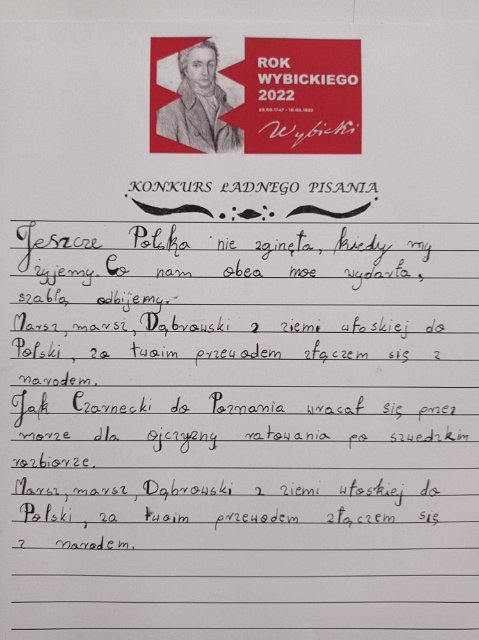 ROK
WYBICKIEGO
2022
29.09.1747 - 10.03.1822
Wybicki
KONKURS ŁADNEGO PISANIA
Jeszcze Polska nie zginęta, kiedy my
żyjemy. Co nam obca moc wydarta,
szablą odbijemy.-
Marsz, marsz, Dąbrowski z ziemi włoskiej do
Polski, za twoim przewodem złączem się z
narodem.
Jak Czarnecki do Poznania wracał się przez
morze dla ojczyzny ratowania po szwedzkim
rozbiorze.
Marsz, marsz, Dąbrowski z ziemi włoskiej do
Polski, za twoim przewodem złączem się
z narodem.